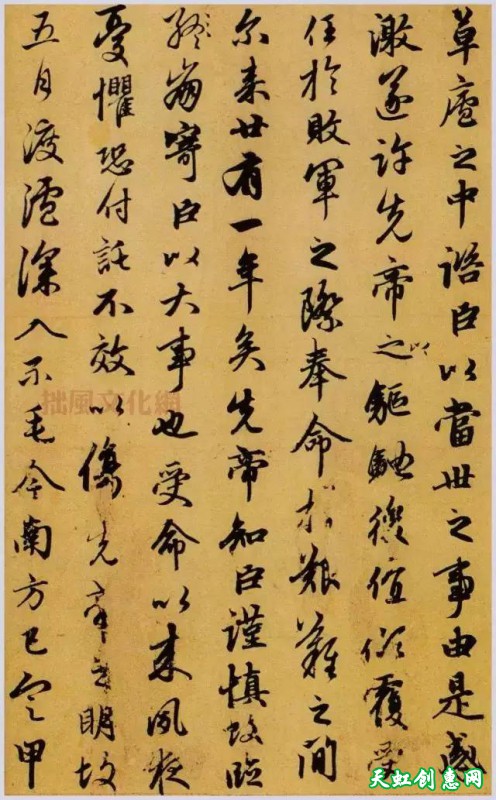 草廬之中諮臣以當世之事由是感
激遂許先帝之以驅馳後值傾覆受
任於敗軍之際奉命於艱難之間
尔来廿有一年矣先帝知臣謹慎故臨
崩寄臣以大事也受命以来夙夜
憂懼恐付託不效以傷先帝之明故
五月渡瀘深入不毛今南方已定甲
拙風文化網
天虹创意网